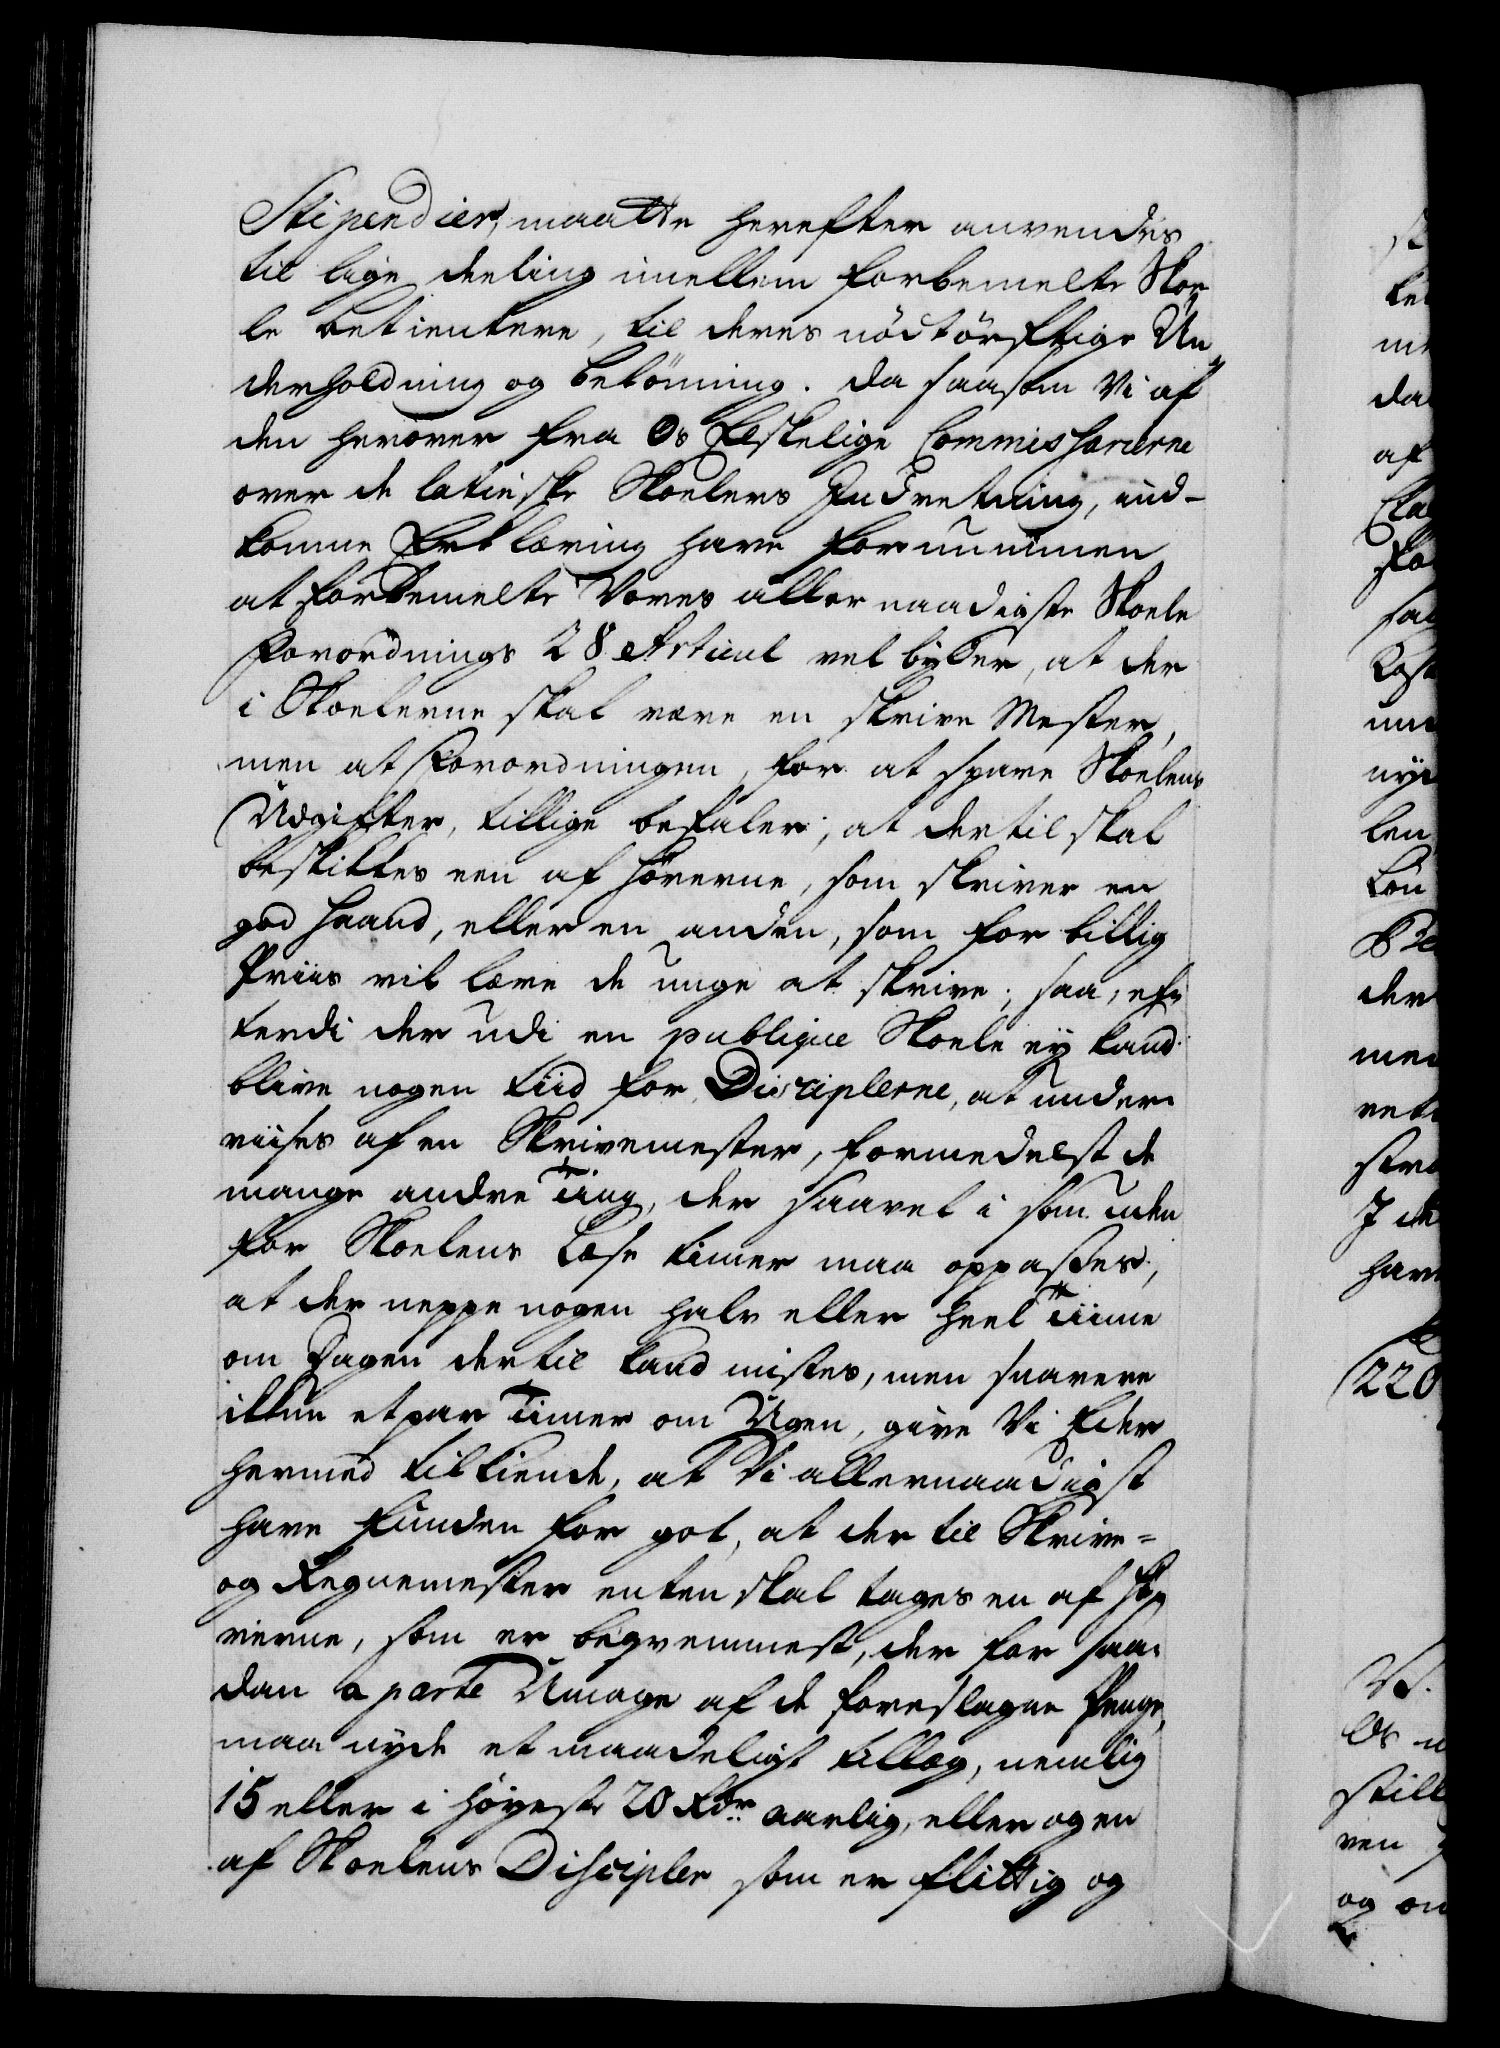 Stipendier, maatte herefter anvendes
til lige deeling imellem forbemelte Skoe,
le betientere, til deres nödtörftige Un,
derholdning og belönning. da saasom Vi af
den herover fra Os Elskelige Commissarierne
over de latinske Skoelers Indretning, ind-
komne Erklæring have fornummen
at forbemelte Vores allernaadigste Skoele
Forordnings 28 Articul vel byder, at der
i Skoelerne skal være en skrive Mester,
men at Forordningen, for at spare Skoelens
Udgifter, tillige befaler, at dertil skal
beskikkes een af Hörerne, som skriver en
god Haand, eller en anden, som for billig
Priis vil lære de unge at skrive; saa, ef,
terdi der udi en publique Skoele ey kand
blive nogen tiid for Disciplerne, at under
viises af en Skrivemester, formedelst de
mange andre Ting, der saavel i som uden
for Skoelens Læse timer maa oppasses,
at der neppe nogen halv eller heel Tiime
om Dagen dertil kand mistes, men snarere
ikkun et par Timer om Ugen, give Vi Eder
hermed tilkiende, at Vi allernaadigst
have funden for got, at der til Skrive=
og Regnemester enten skal tages en af Hö,
rerne, som er beqvemmest, der for saa,
dan a parte Umage af de foreslagne Penge,
maa nyde et maadeligt tillæg, nemlig
15 eller i höyeste 20 Rdr. aarlig, eller og en
af Skoelens Discipler som er flittig og